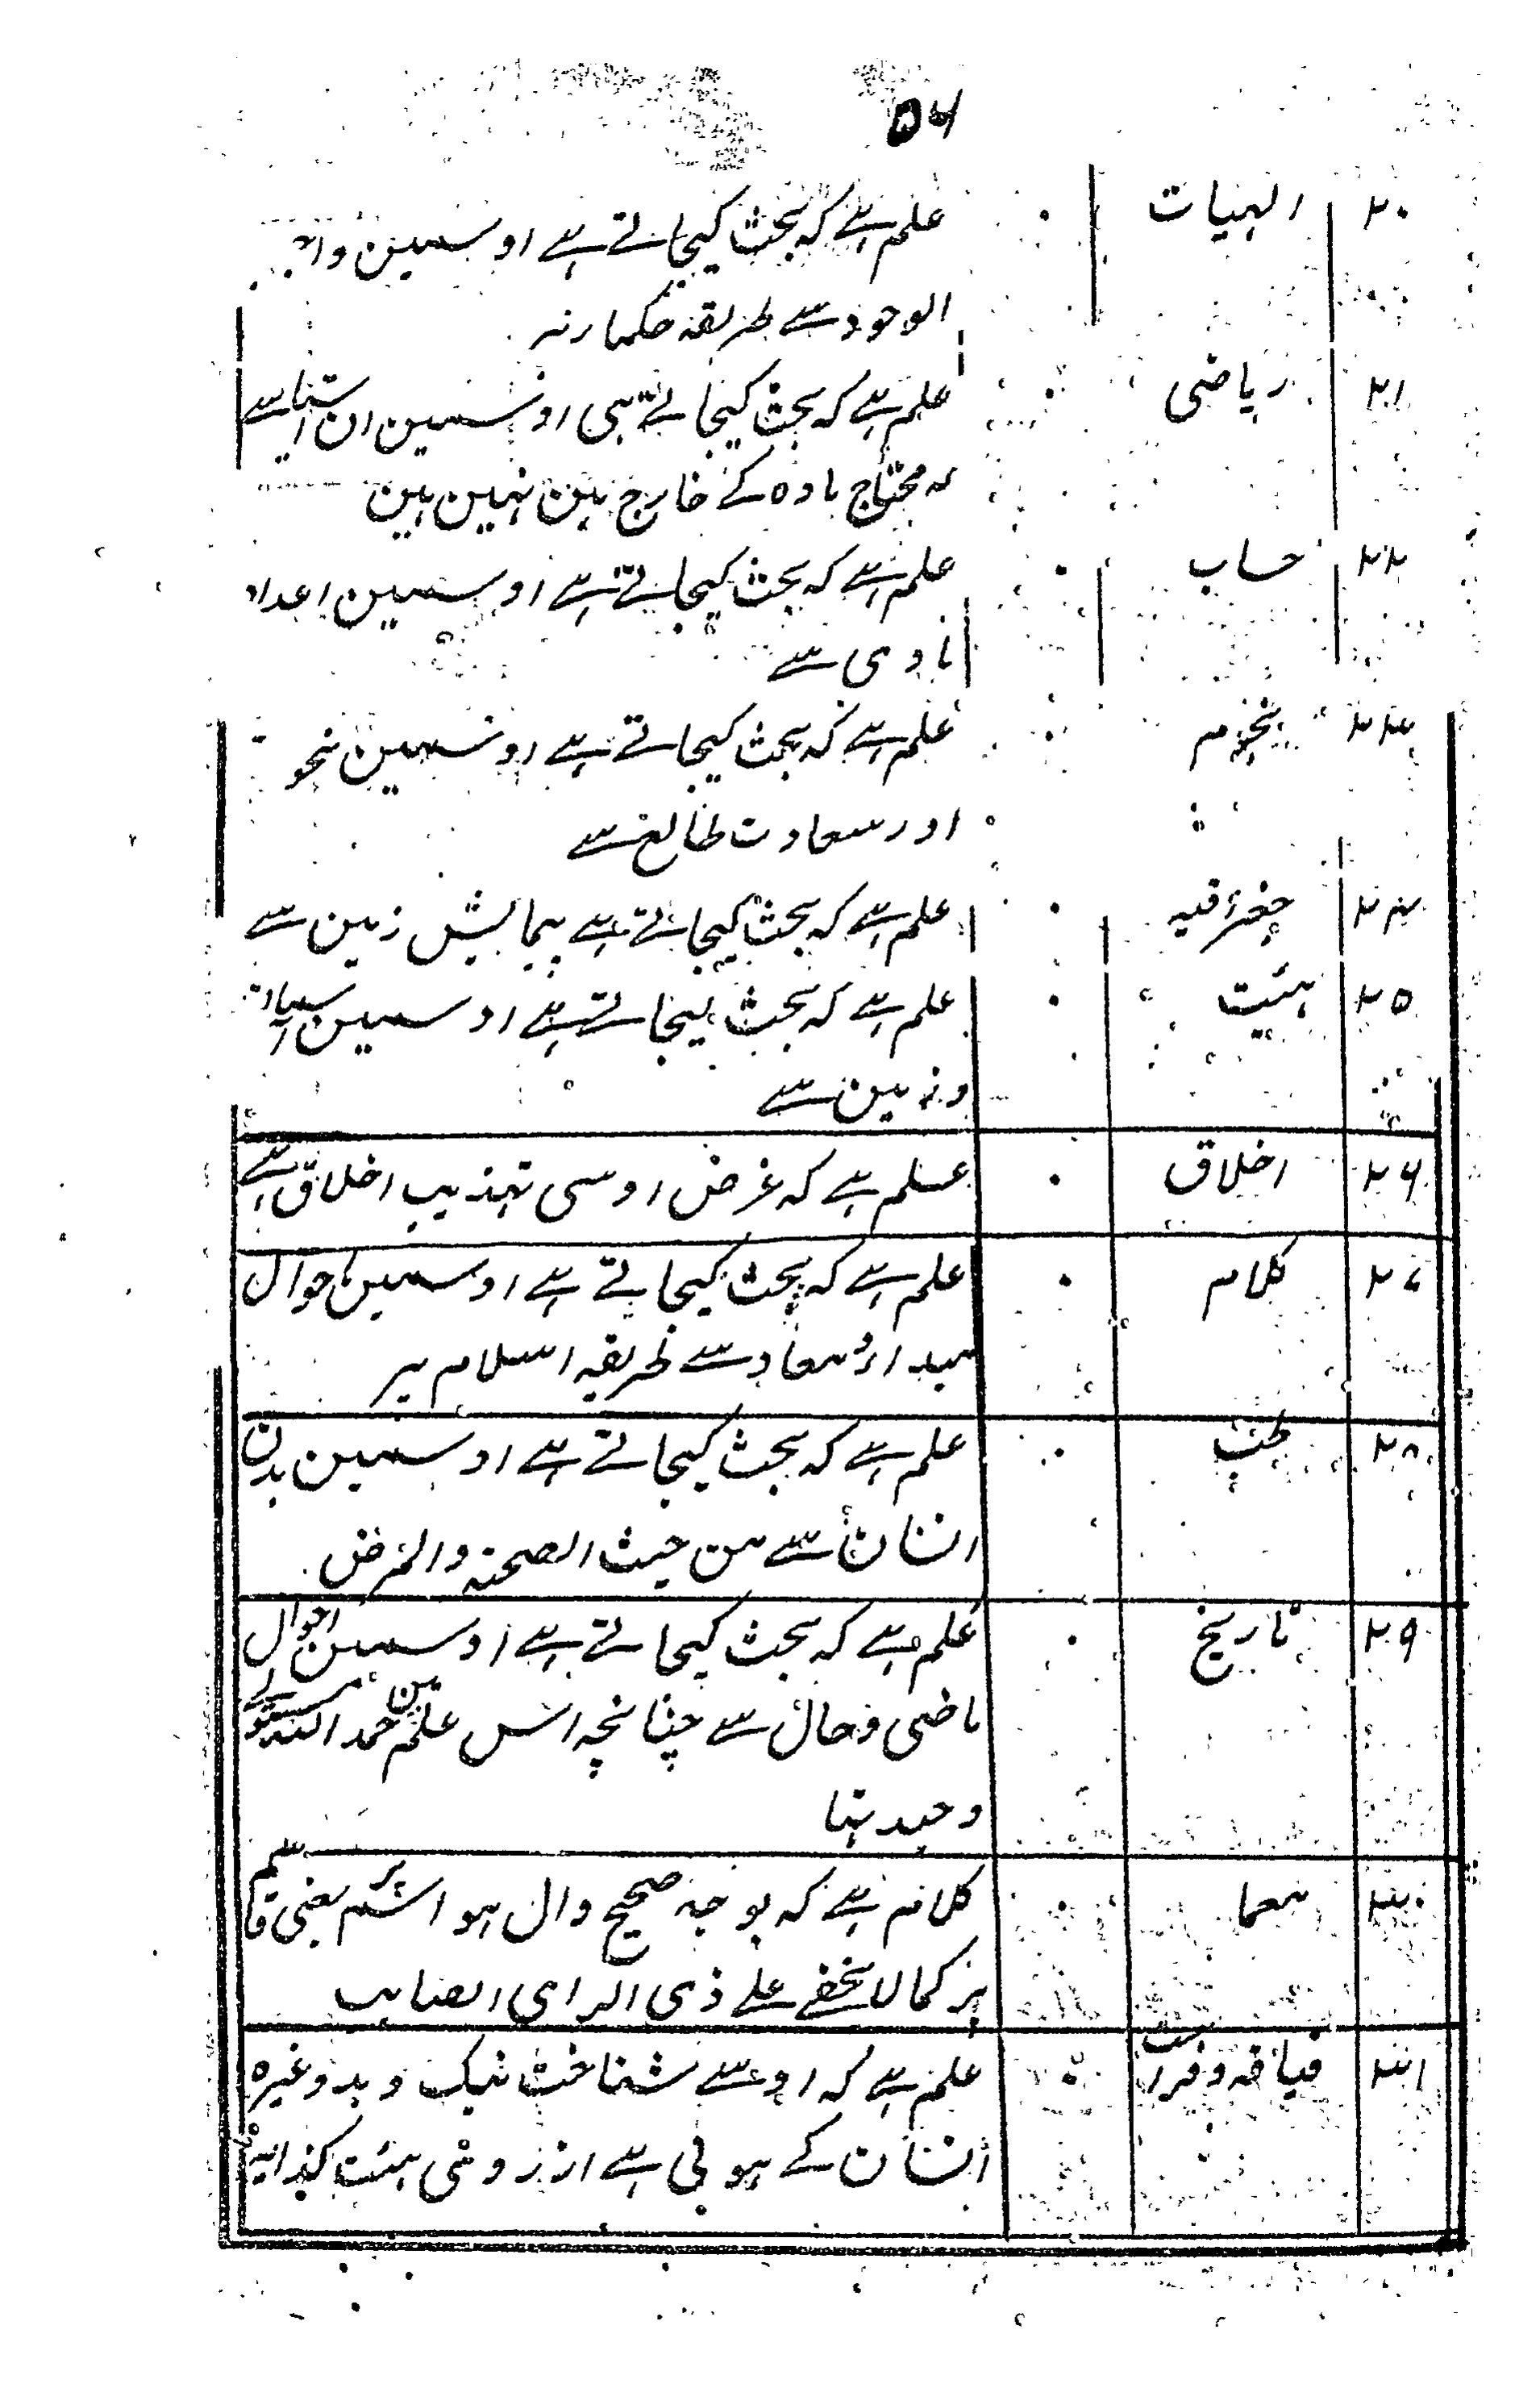 ۵۶
۲۰ الہیات ۰ علم ہے کہ بحث کیجاتے ہے اوسمین
الوجود سے طریقہ حکما پر
۲۱ ریاضی ۰ علم ہے کہ بحث کیجاتے ہی اوسمین ان اشیا سے
کہ محتاج مادہ کے خارج مین نہین ہین
۲۲ حساب ۰ علم ہے کہ بحث کیجاتے ہے اوسمین اعداد
مادی سے
۲۳ نجوم ۰ علم ہے کہ بحث کیجاتے ہے اوسمین
اور سعادت طالع سے
۲۴ جغرافیہ ۰ علم ہے کہ بحث کیجاتے ہے پیمایش زمین سے
۲۵ ہئیت ۰ علم ہے کہ بحث کیجاتے ہے اوسمین
وزمین سے
۲۶ اخلاق ۰ علم ہے کہ غرض اوسی تہذیب اخلاق ہے
۲۷ کلام ۰ علم ہے کہ بحث کیجاتے ہے اوسمین احوال
مبداؤ معاد سے طریقہ اسلام پر
۲۸ طب ۰ علم ہے کہ بحث کیجاتے ہے اوسمین بدن
انسان سے من حیث الصحتہ والمرض
۲۹ تاریخ ۰ علم ہے کہ بحث کیجاتے ہے اوسمین احوال
ماضی و حال سے چنانچہ اس علم مین حمد اللہ
وحید تہا
۳۰ معما ۰ کلام ہے کہ بوجہ صحیح دال ہو اسم پر یعنی
پر کمالا یخفے علے ذی الرای الصایب
۳۱ قیافہ و فراست ۰ علم ہے کہ اوسے شناخت نیک و بد وغیرہ
انسان کے ہوتی ہے از روئی ہئت